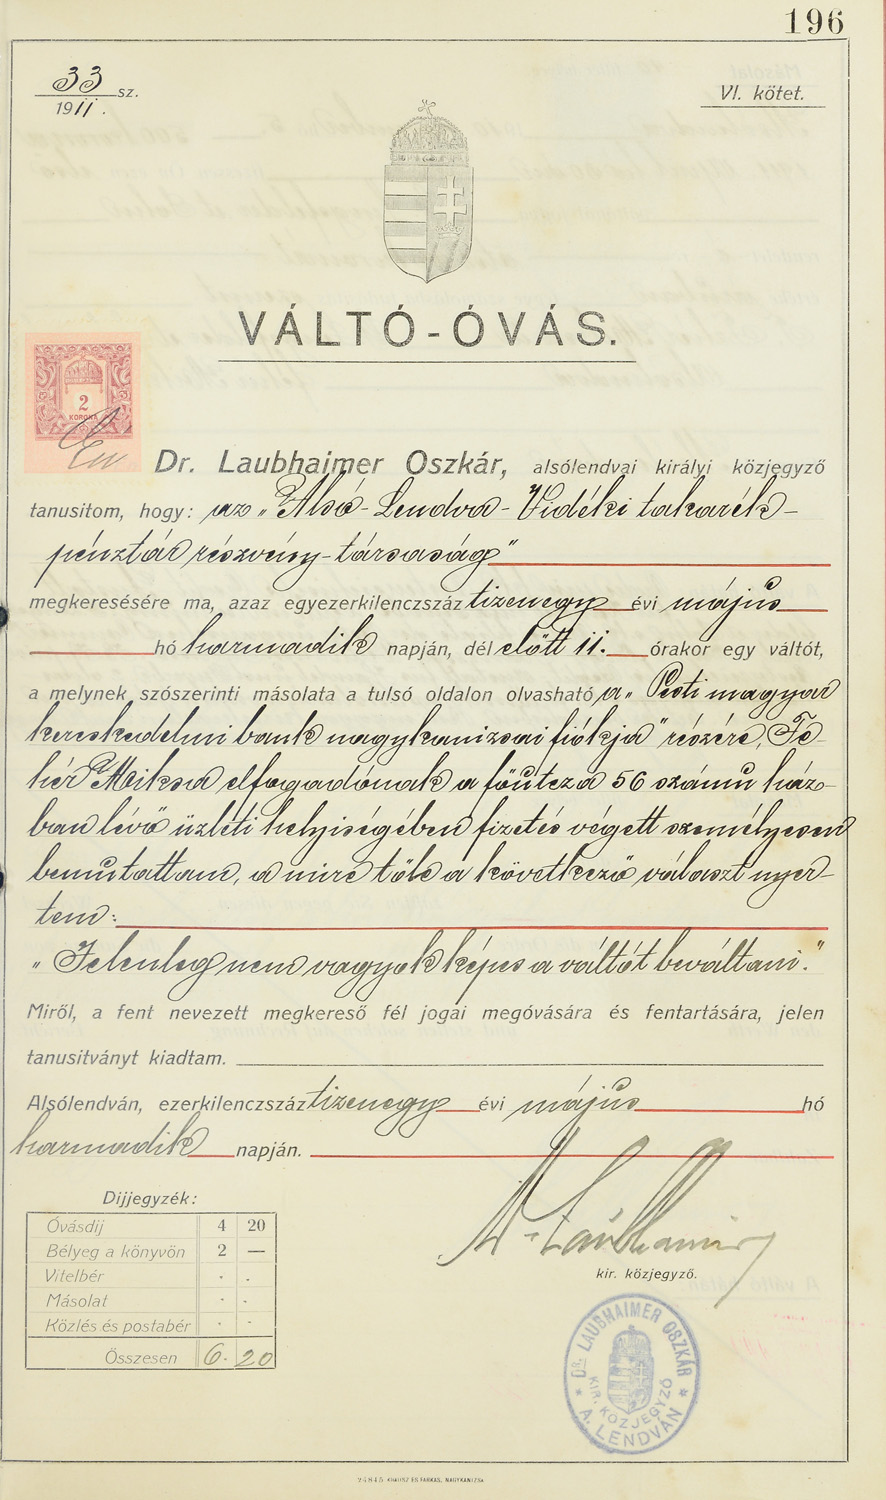 196
33 sz.
1911.
VI. kötet.
VÁLTÓ-ÓVÁS.
2
KORONA
Dr. Laubhaimer Oszkár, alsólendvai királyi közjegyző
tanusitom, hogy: az „Alsó-Lendva-Vidéki takarék-
pénztár részvény-társaság"
megkeresésére ma, azaz egyezerkilenczszáz tizenegy évi május
hó harmadik napján, dél előtt 11. órakor egy váltót,
a melynek szószerinti másolata a tulsó oldalon olvasható a „Pesti magyar
kereskedelmi bank nagykanizsai fiókja" részére, Fe-
hér Miksa elfogadónak a főutcza 56 számu ház-
ban lévő üzleti helyiségében fizetés végett személyesen
bemutattam, a mire tőle a következő választ nyer-
tem:
„Jelenleg nem vagyok képes a váltót beváltani."
Miről, a fent nevezett megkereső fél jogai megóvására és fentartására, jelen
tanusitványt kiadtam.
Alsólendván, ezerkilenczszáz tizenegy évi május hó
harmadik napján.
Dr. Laubhaimer
kir. közjegyző.
Dijjegyzék:
Óvásdij 4 20
Bélyeg a könyvön 2 —
Vitelbér . .
Másolat . .
Közlés és postabér . .
Összesen 6. 20
DR. LAUBHAIMER OSZKÁR
KIR. KÖZJEGYZŐ
* A. LENDVÁN *
24845 KRAUSZ ÉS FARKAS, NAGYKANIZSA